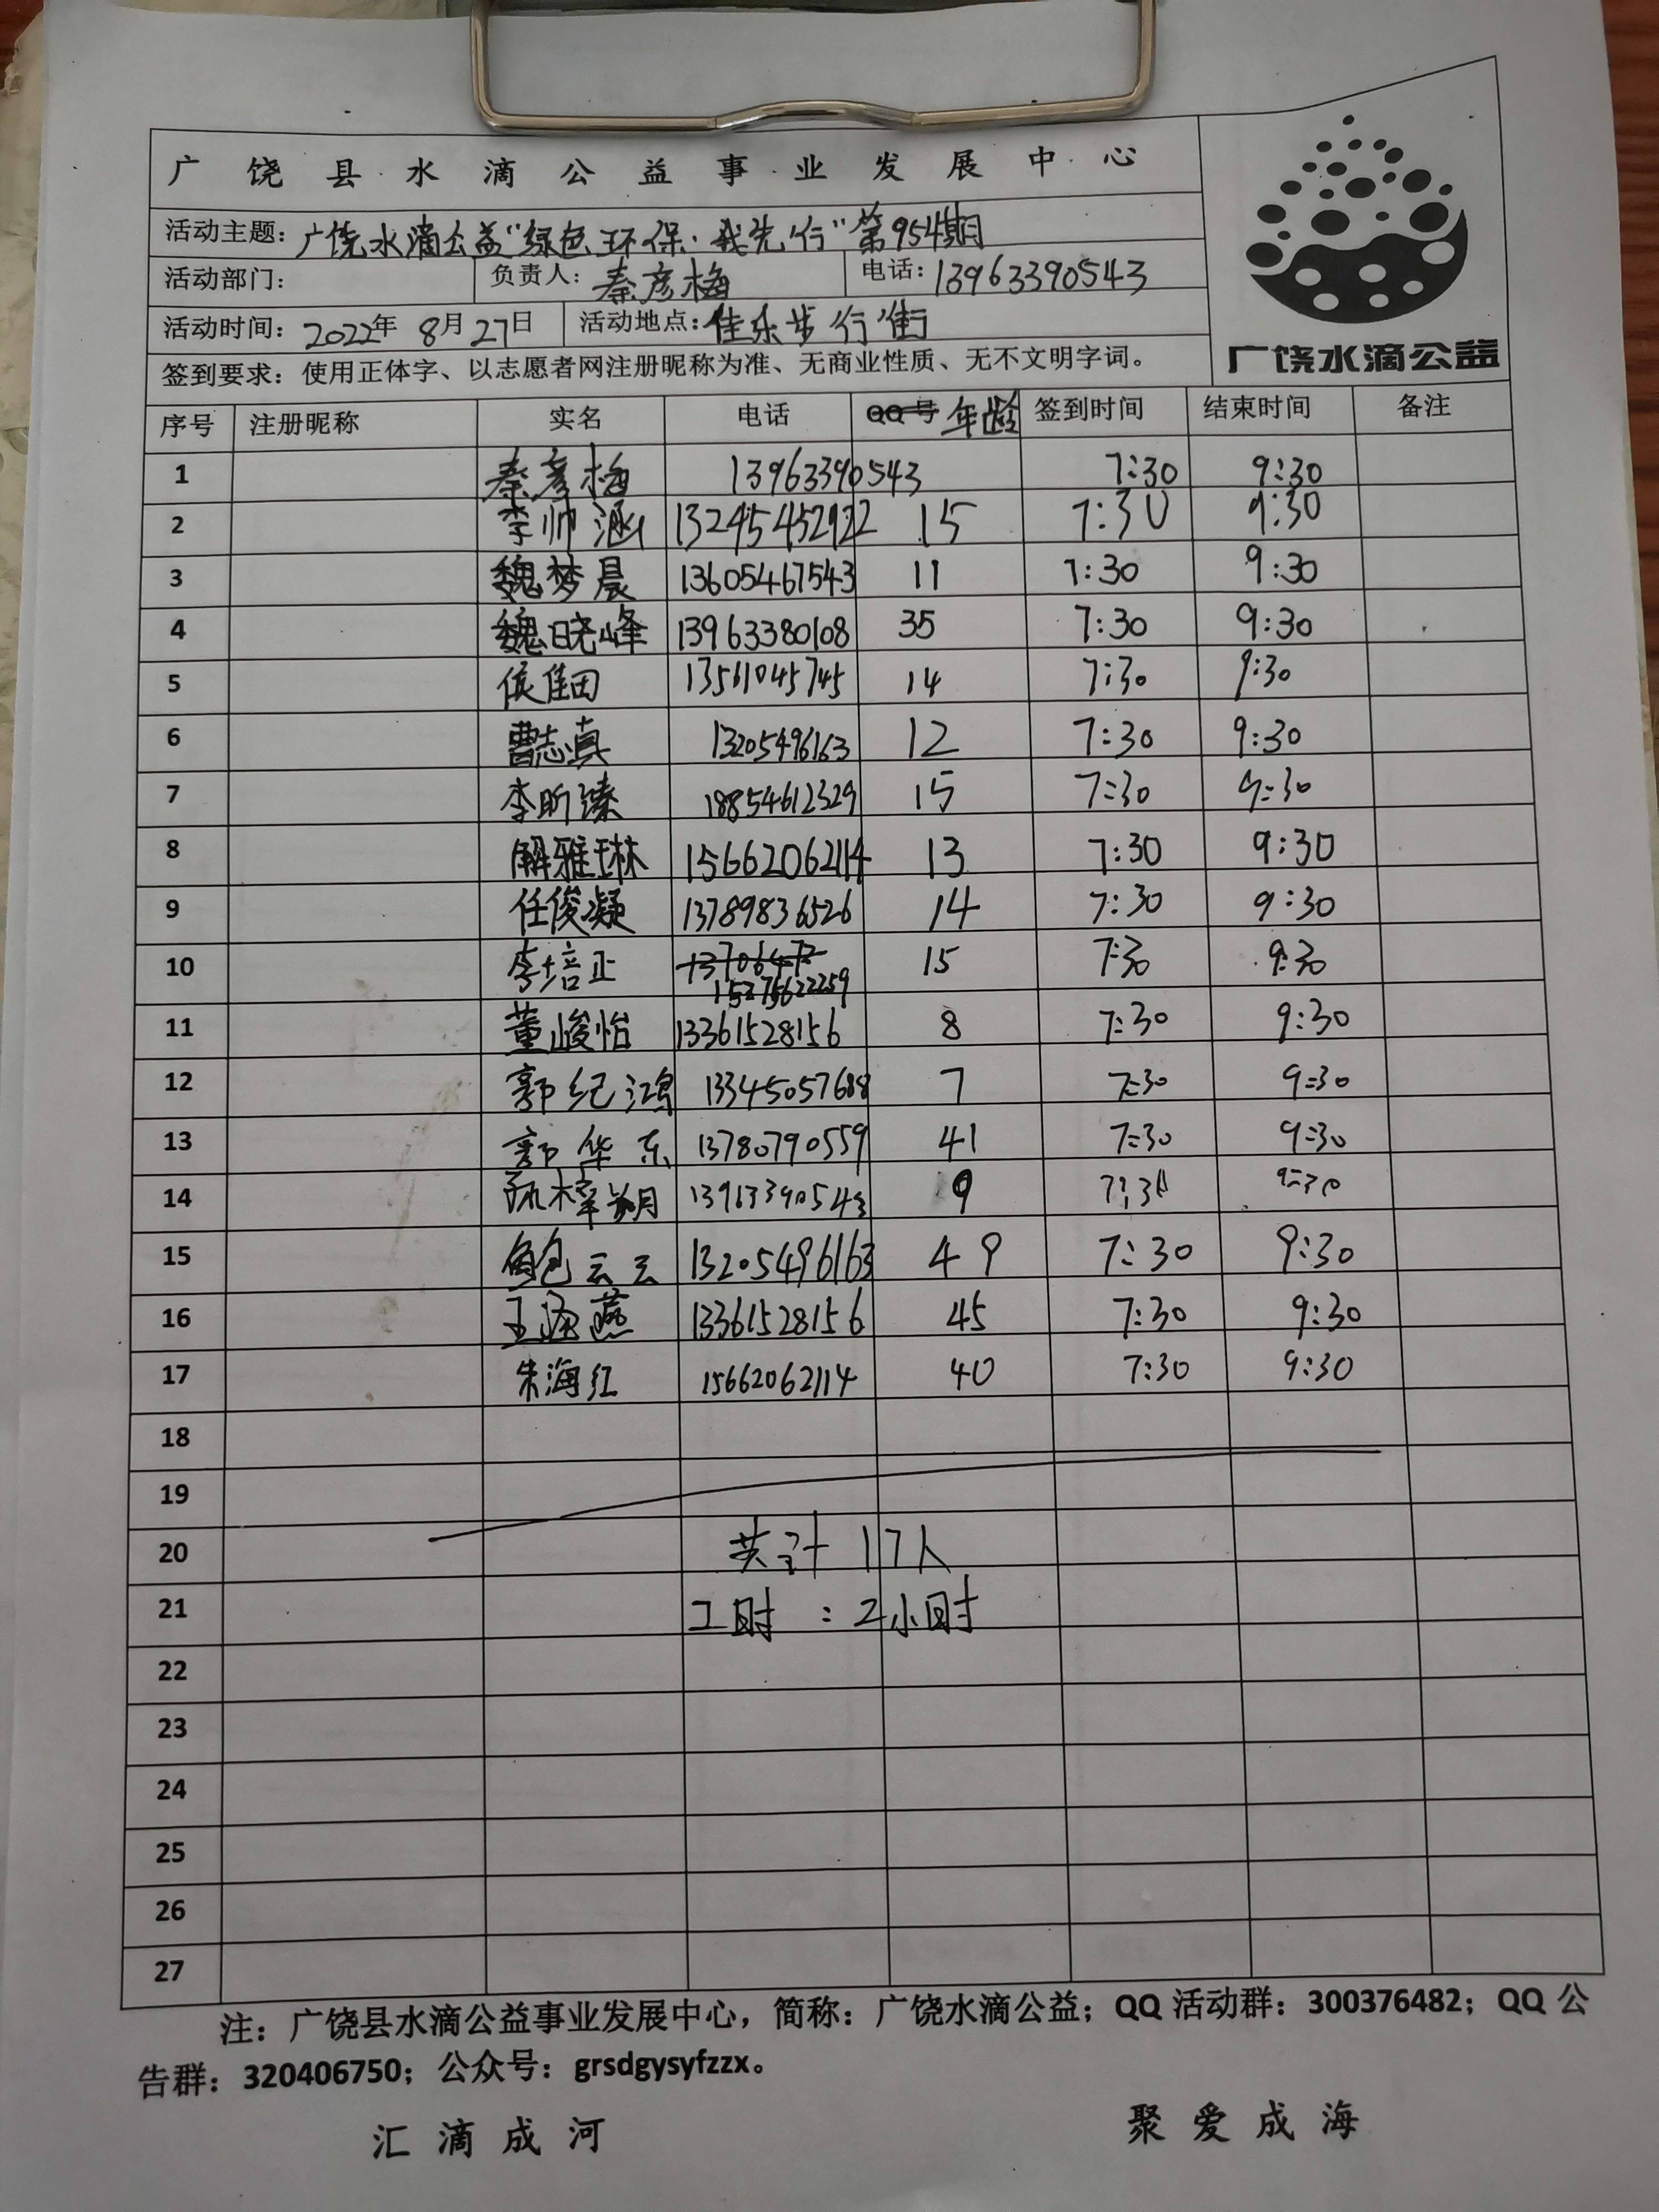 广饶县水滴公益事业发展中心
活动主题：广饶水滴公益"绿色环保·我先行"第954期
活动部门： 负责人：秦彦梅 电话：13963390543
活动时间：2022年 8月27日 活动地点：佳乐步行街
签到要求：使用正体字、以志愿者网注册昵称为准、无商业性质、无不文明字词。
广饶水滴公益
序号 注册昵称 实名 电话 QQ号 年龄 签到时间 结束时间 备注
1 秦彦梅 13963390543 7:30 9:30
2 李帅涵 13245452922 15 7:30 9:30
3 魏梦晨 13605467543 11 7:30 9:30
4 魏晓峰 13963380108 35 7:30 9:30
5 侯佳田 13561045745 14 7:30 9:30
6 曹志真 13205496163 12 7:30 9:30
7 李昕臻 18854612329 15 7:30 9:30
8 解雅琳 15662062114 13 7:30 9:30
9 任俊凝 13789836526 14 7:30 9:30
10 李培正 15275622259 15 7:30 9:30
11 董峻怡 13361528156 8 7:30 9:30
12 郭纪鸿 13345057688 7 7:30 9:30
13 郭华东 13780790559 41 7:30 9:30
14 梓玥 13963390543 9 7:30 9:30
15 云云 13205496163 49 7:30 9:30
16 王燕 13361528156 45 7:30 9:30
17 朱海红 15662062114 40 7:30 9:30
18
19
20 共计 17人
21 工时：2小时
22
23
24
25
26
27
注：广饶县水滴公益事业发展中心，简称：广饶水滴公益；QQ 活动群：300376482；QQ 公
告群：320406750；公众号：grsdgysyfzzx。
汇滴成河 聚爱成海